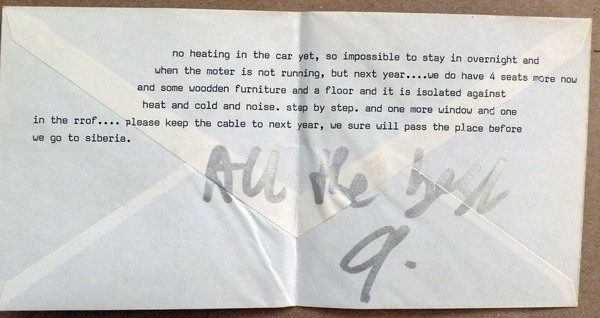 no heating in the car yet, so impossible to stay in overnight and
when the moter is not running, but next year....we do have 4 seats more now
and some woodden furniture and a floor and it is isolated against
heat and cold and noise. step by step. and one more window and one
in the rrof.... please keep the cable to next year, we sure will pass the place before
we go to siberia.
All the best
9.